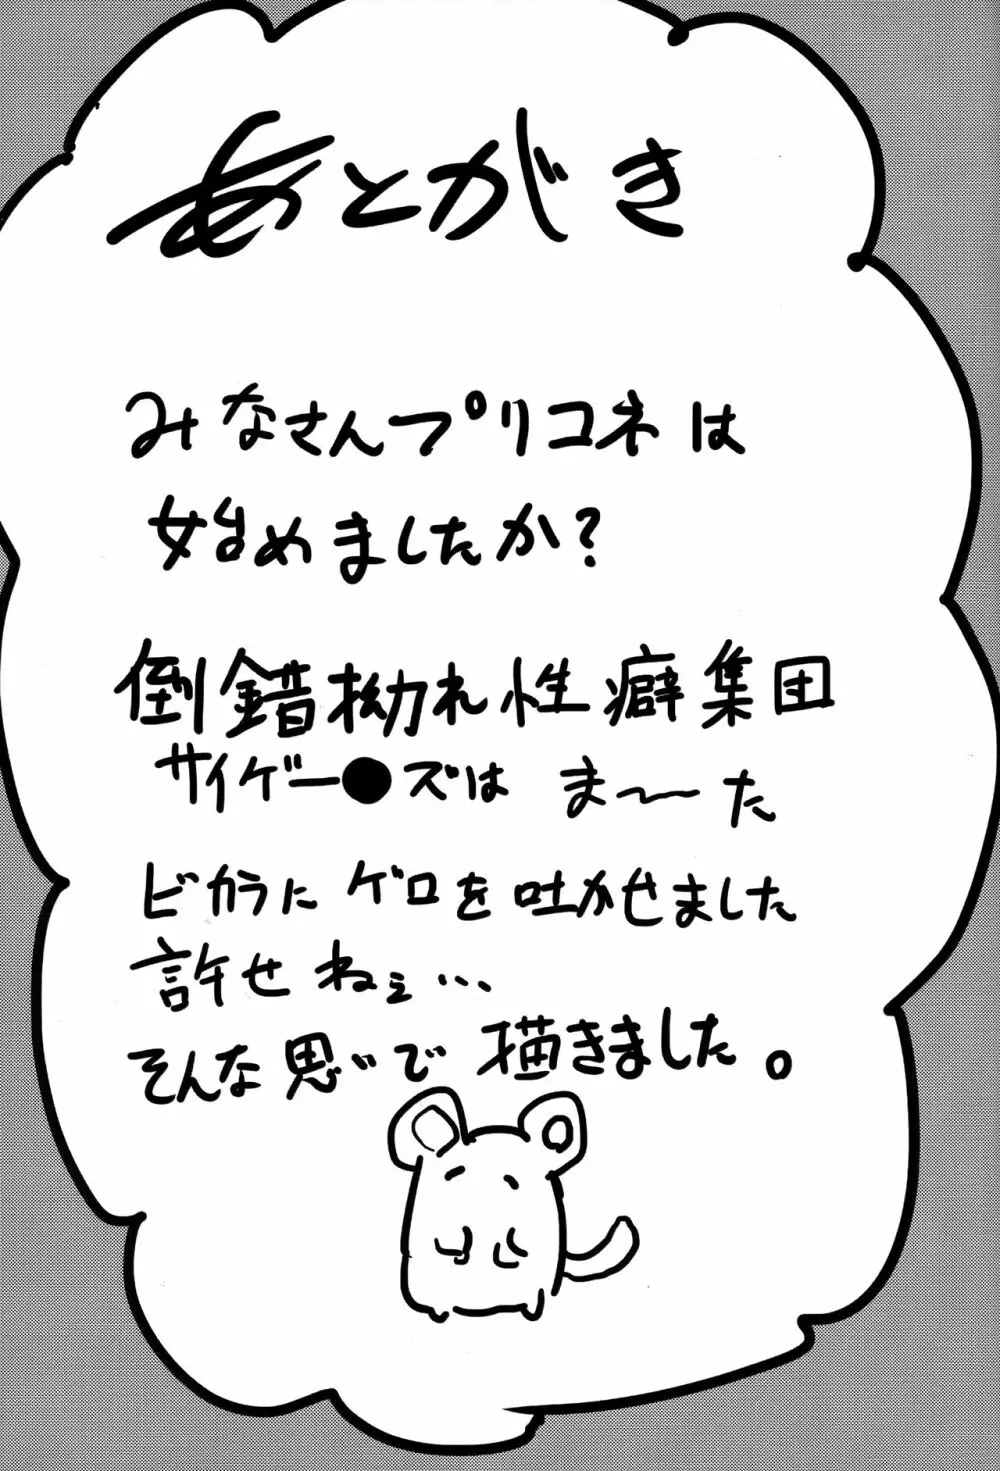 あとがき
みなさんプリコネは
始めましたか?
倒錯拗れ性癖集団
サイゲー●ズは ま〜た
ビカラにゲロを吐かせました
許せねぇ…
そんな思いで描きました。